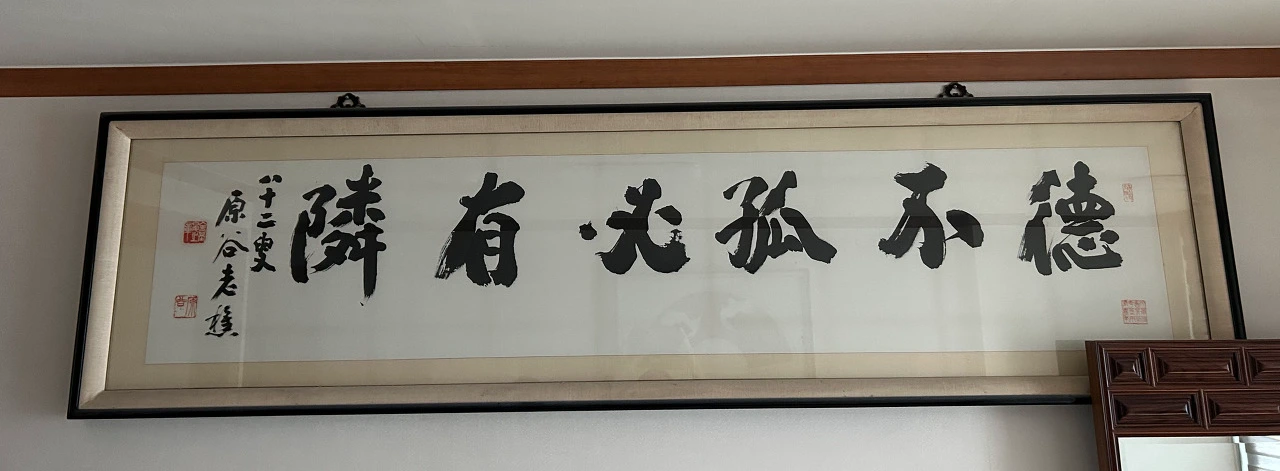 德不孤必有隣
八十二叟
原谷老樵